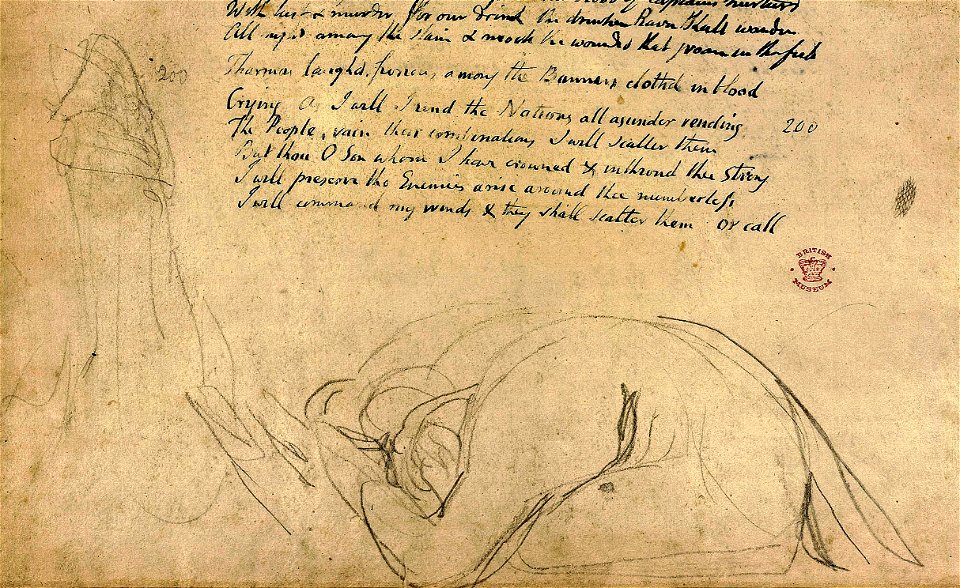 of captains nurturd
With lust & murder for our drink the drunken Raven shall wander
All night among the slain & mock the wounded that groan in the field
200
Tharmas laughd furious among the Banners clothd in blood
Crying As I will I rend the Nations all asunder rending
200
The People, vain their combinations I will scatter them
But thou O Son whom I have crowned & inthrond thee Strong
I will preserve tho Enemies arise around thee numberless
I will command my winds & they shall scatter them or call
BRITISH
MUSEUM